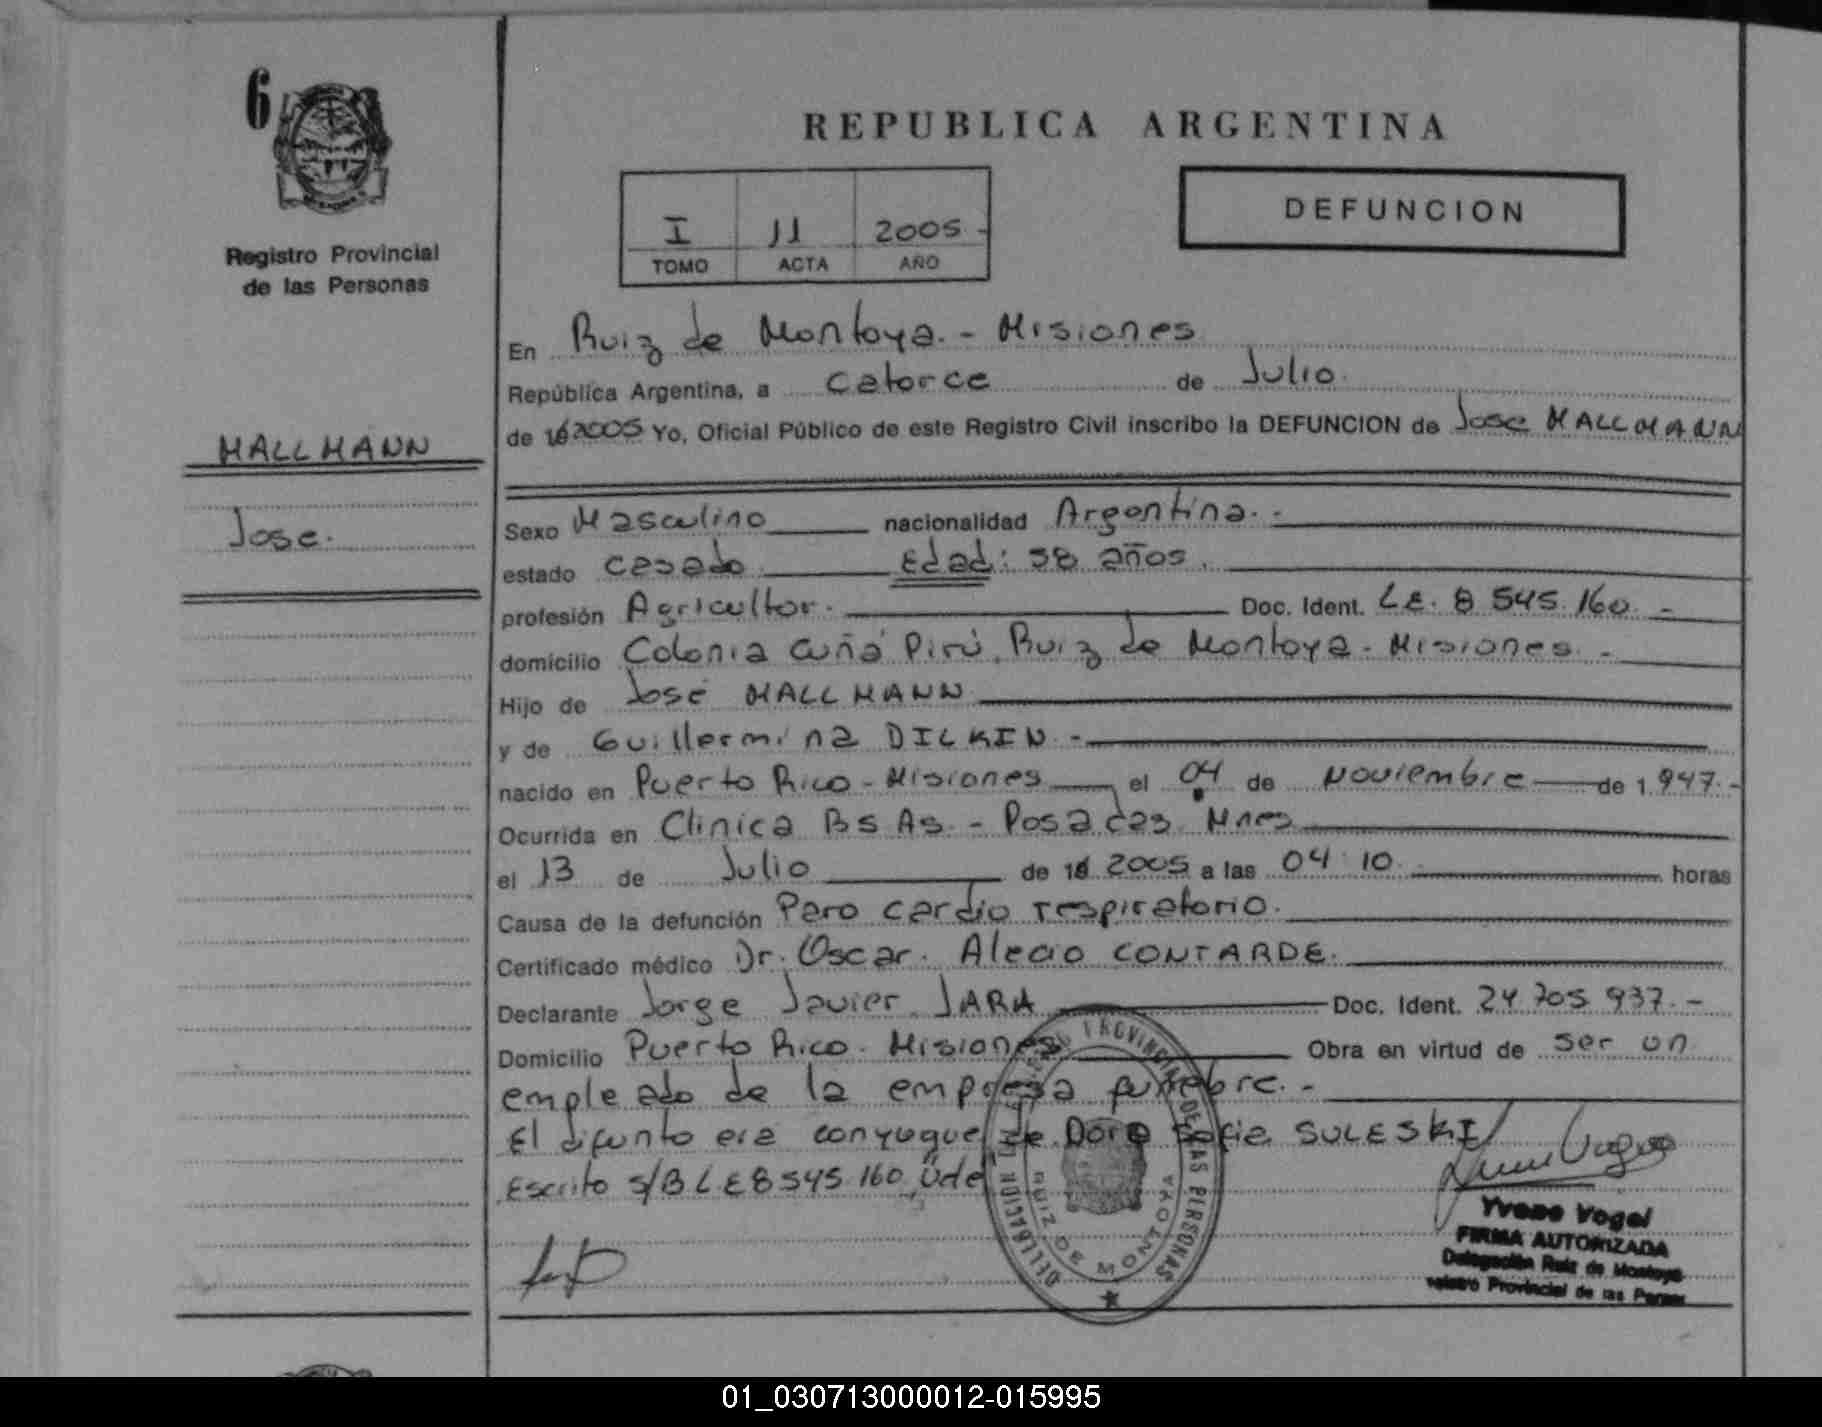 6
REPUBLICA ARGENTINA
DEFUNCION
I 11 2005.-
TOMO ACTA AÑO
Registro Provincial
de las Personas
MALLMANN
Jose.
En Ruiz de Montoya.- Misiones
República Argentina, a catorce de Julio.
de 2005 Yo, Oficial Público de este Registro Civil inscribo la DEFUNCION de Jose MALLMANN
Sexo Masculino nacionalidad Argentina.-
estado casado Edad: 58 años.
profesión Agricultor. Doc. Ident. L.E. 8 545.160.-
domicilio Colonia Cuñá Pirú, Ruiz de Montoya - Misiones.-
Hijo de José MALLMANN
y de Guillermina DILKIN.-
nacido en Puerto Rico - Misiones el 04 de Noviembre de 1.947.-
Ocurrida en Clinica Bs As. - Posadas Mnes
el 13 de Julio de 2005 a las 04:10. horas
Causa de la defunción Paro cardio respiratorio.
Certificado médico Dr. Oscar. Alecio CONTARDE.
Declarante Jorge Javier JARA Doc. Ident. 24.705.937.-
Domicilio Puerto Rico. Misiones Obra en virtud de ser un
empleado de la empresa funebre.-
El difunto era conyugue de Dora Sofia SULESKI
Escrito s/B L E 8 545.160
DELEGACION REGISTRO PROVINCIAL DE LAS PERSONAS
RUIZ DE MONTOYA
Yvone Vogel
FIRMA AUTORIZADA
Delegación Ruiz de Montoya
Provincial de las
01_030713000012-015995